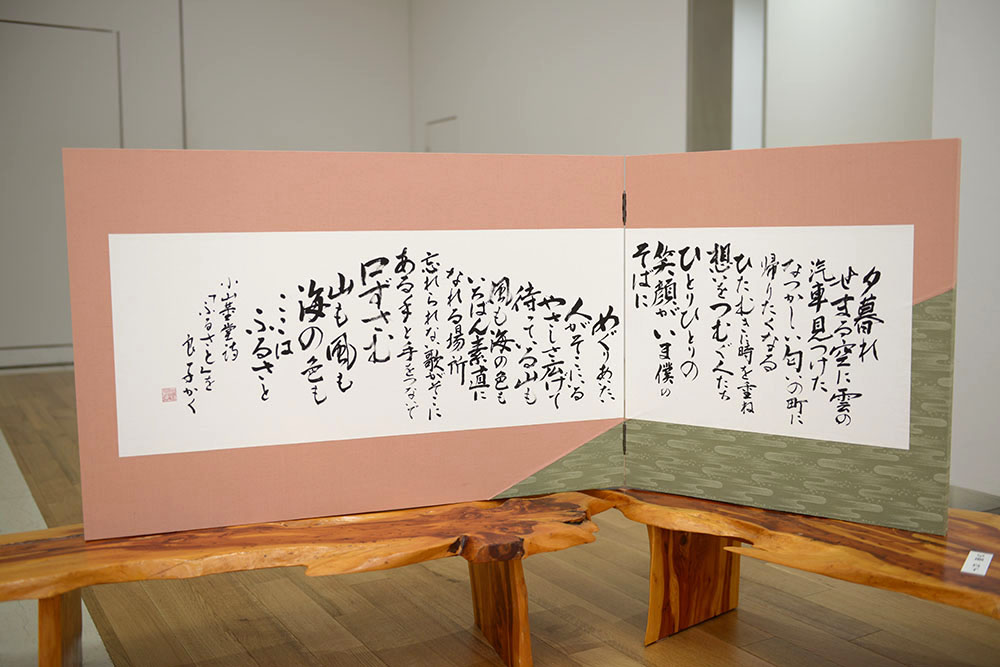 夕暮れ
せまる空に雲の
汽車見つけた
なつかしい匂いの町に
帰りたくなる
ひたむきに時を重ね
想いをつむぐ人たち
ひとりひとりの
笑顔がいま僕の
そばに
めぐりあいたい
人がそこにいる
やさしさ広げて
待っている山も
風も海の色も
いちばん素直に
なれる場所
忘れられない歌がそこに
ある手と手をつないで
口ずさむ
山も風も
海の色も
ここは
ふるさと
小山薫堂詩
「ふるさと」を
良子かく